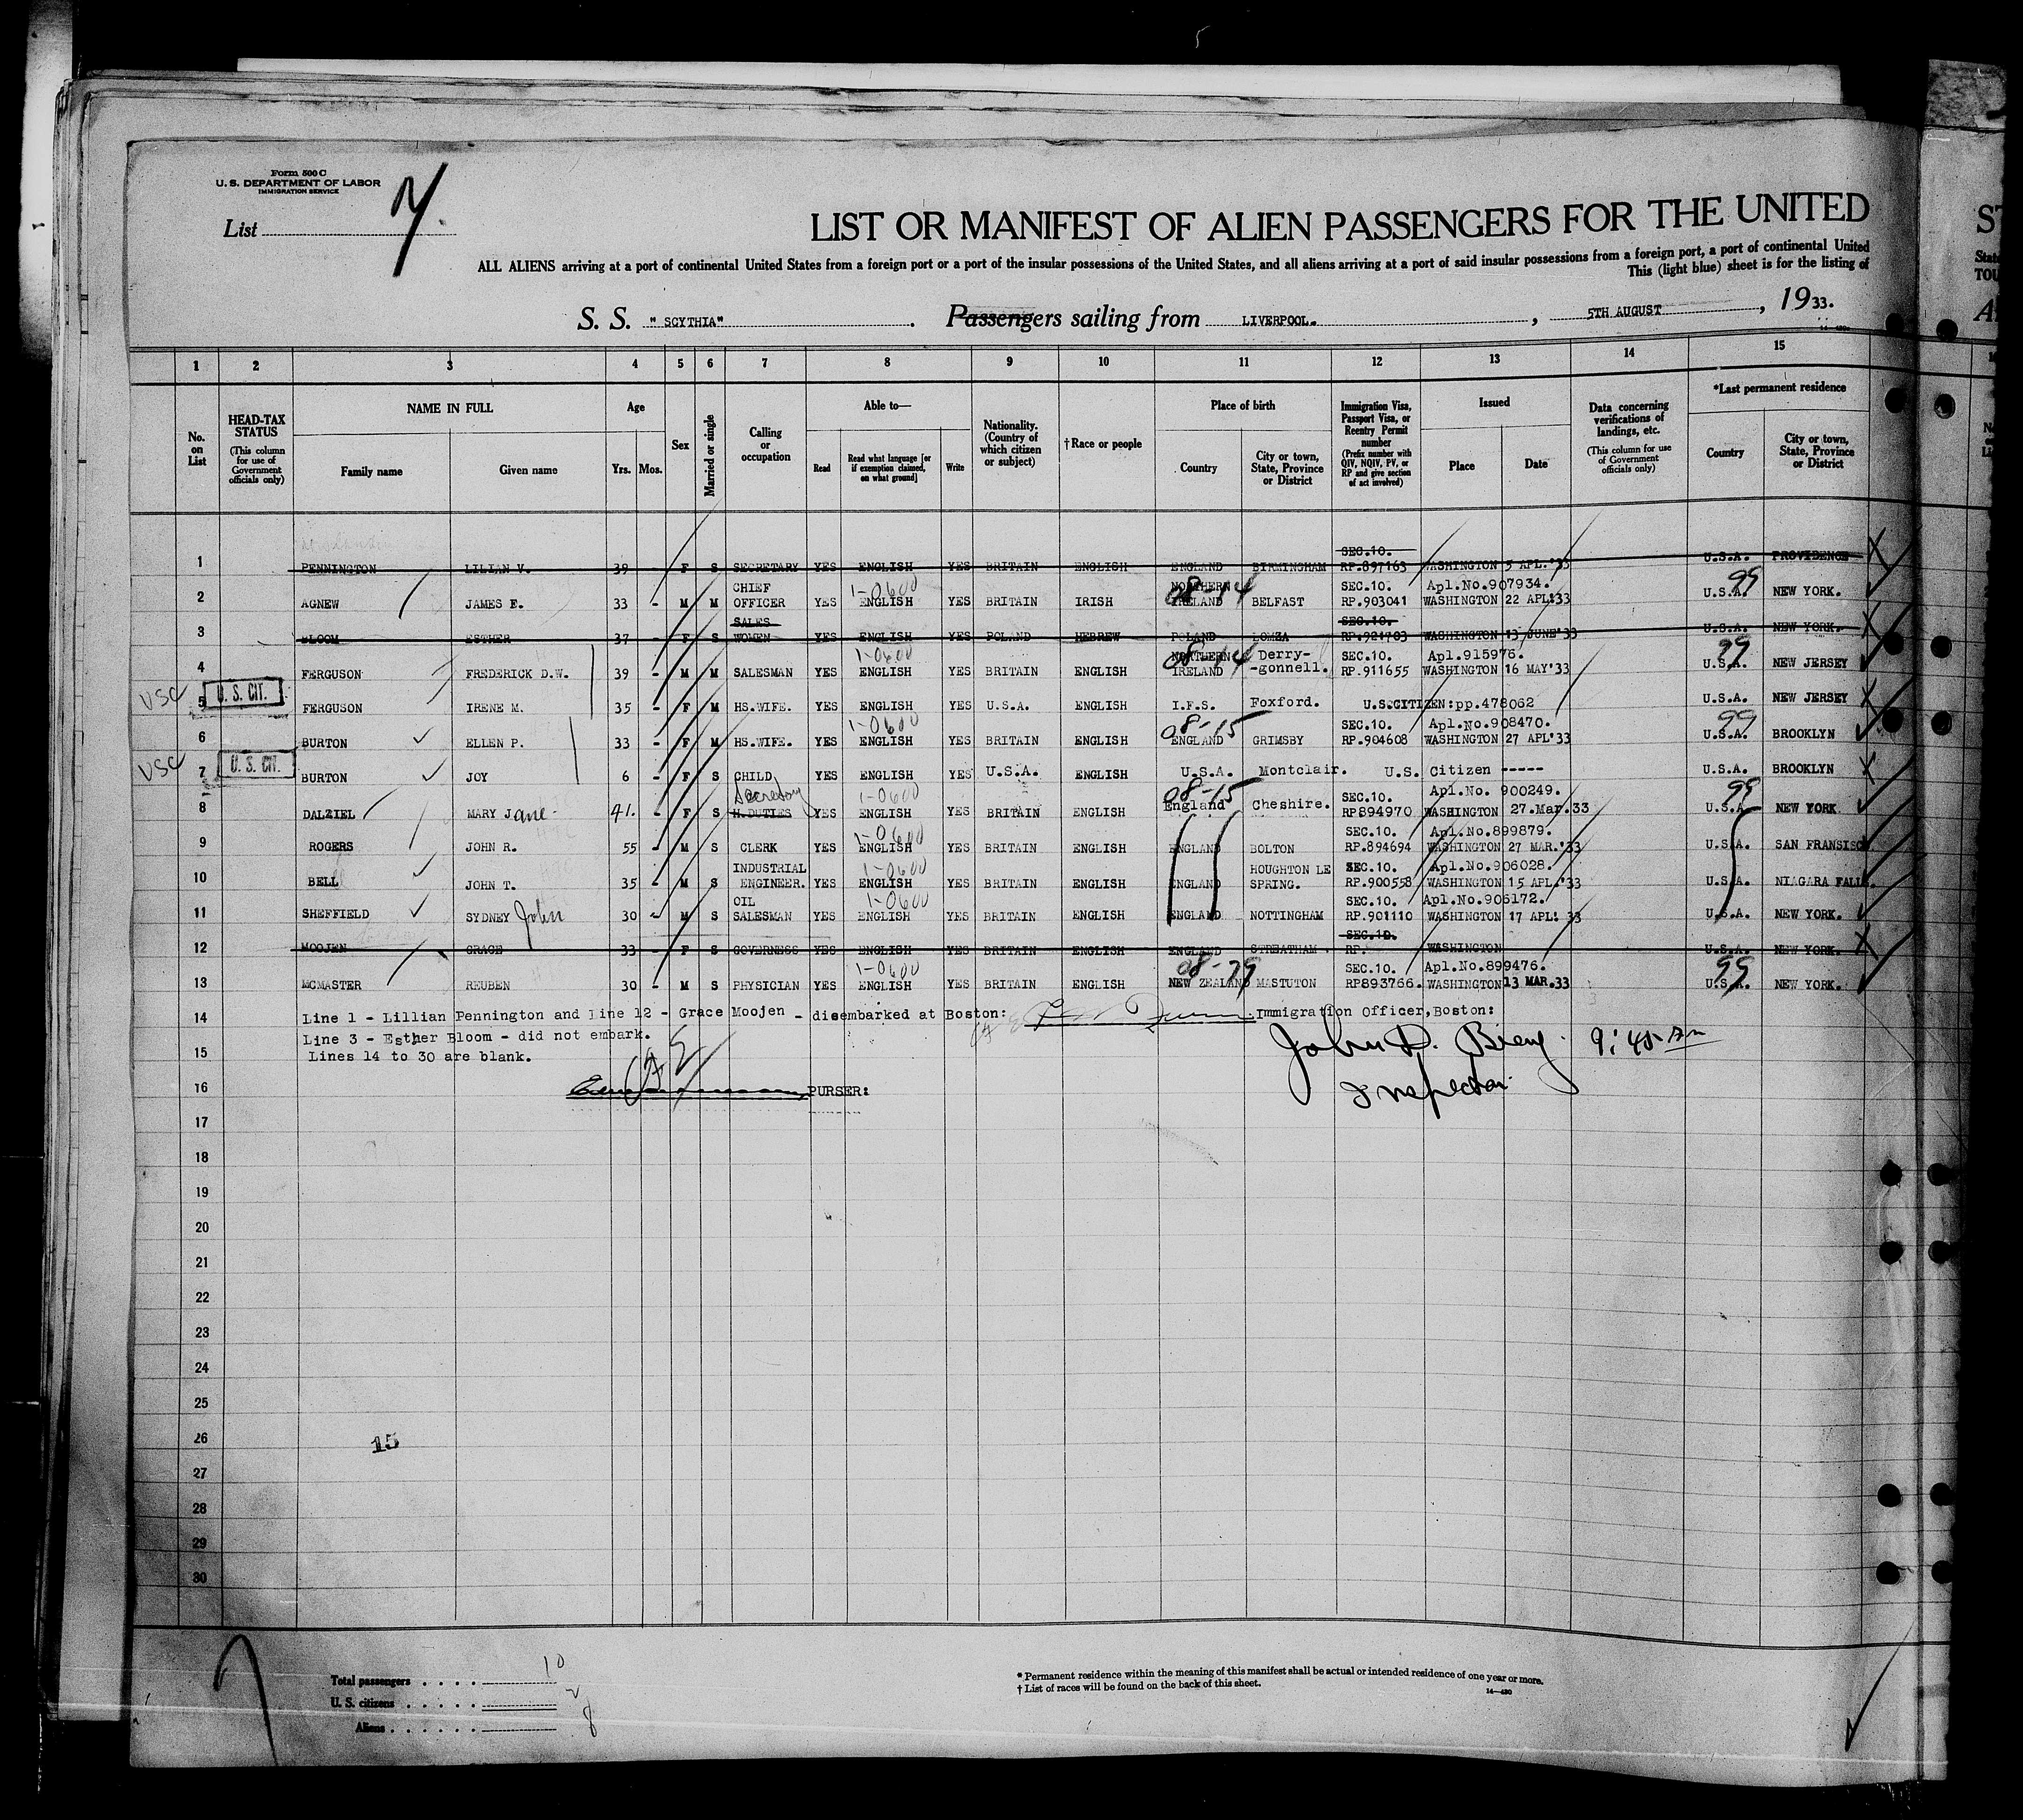 5
Form 500 C
U. S. DEPARTMENT OF LABOR
IMMIGRATION SERVICE
List
LIST OR MANIFEST OF ALIEN PASSENGERS FOR THE UNITED
ALL ALIENS arriving at a port of continental United States from a foreign port or a port of the insular possessions of the United States, and all aliens arriving at a port of said insular possessions from a foreign port, a port of continental United
This (light blue) sheet is for the listing of
S. S. "SCYTHIA" . Passengers sailing from LIVERPOOL. , 5TH AUGUST , 1933.
1 2 3 4 5 6 7 8 9 10 11 12 13 14 15
No. on List
HEAD-TAX STATUS (This column for use of Government officials only)
NAME IN FULL Family name Given name
Age Yrs. Mos.
Sex
Married or single
Calling or occupation
Able to— Read Read what language [or if exemption claimed, on what ground] Write
Nationality. (Country of which citizen or subject)
†Race or people
Place of birth Country City or town, State, Province or District
Immigration Visa, Passport Visa, or Reentry Permit number (Prefix number with QIV, NQIV, PV, or RP and give section of act involved)
Issued Place Date
Data concerning verifications of landings, etc. (This column for use of Government officials only)
*Last permanent residence Country City or town, State, Province or District
1 PENNINGTON LILIAN V. 39 F S SECRETARY YES ENGLISH YES BRITAIN ENGLISH ENGLAND BIRMINGHAM SEC.10. RP.897163 WASHINGTON 5 APL.'33 U.S.A. PROVIDENCE
2 AGNEW JAMES E. 33 - M M CHIEF OFFICER YES 1-0600 ENGLISH YES BRITAIN IRISH 08-14 NORTHERN IRELAND BELFAST SEC.10. RP.903041 Apl.No.907934. WASHINGTON 22 APL'33 99 U.S.A. NEW YORK.
3 BLOOM ESTHER 37 - F S SALES WOMEN YES ENGLISH YES POLAND HEBREW POLAND LOMZA SEC.10. RP.921703 WASHINGTON 13 JUNE'33 U.S.A. NEW YORK.
4 FERGUSON FREDERICK D.W. 39 - M M SALESMAN YES 1-0600 ENGLISH YES BRITAIN ENGLISH 08-14 NORTHERN IRELAND Derry- -gonnell. SEC.10. RP.911655 Apl.915976. WASHINGTON 16 MAY'33 99 U.S.A. NEW JERSEY
USC U. S. CIT. 5 FERGUSON IRENE M. 35 - F M HS.WIFE. YES ENGLISH YES U.S.A. ENGLISH I.F.S. Foxford. U.S.CITIZEN:pp.478062 U.S.A. NEW JERSEY
6 BURTON ELLEN P. 33 - F M HS.WIFE. YES 1-0600 ENGLISH YES BRITAIN ENGLISH 08-15 ENGLAND GRIMSBY SEC.10. RP.904608 Apl.No.908470. WASHINGTON 27 APL'33 99 U.S.A. BROOKLYN
USC U. S. CIT. 7 BURTON JOY 6 - F S CHILD YES ENGLISH YES U.S.A. ENGLISH U.S.A. Montclair. U.S. Citizen ----- U.S.A. BROOKLYN
8 DALZIEL MARY Jane 41. - F S Secretary H.DUTIES YES 1-0600 ENGLISH YES BRITAIN ENGLISH 08-15 England Cheshire. SEC.10. RP894970 Apl.No. 900249. WASHINGTON 27.Mar.33 99 U.S.A. NEW YORK
9 ROGERS JOHN R. 55 - M S CLERK YES 1-0600 ENGLISH YES BRITAIN ENGLISH ENGLAND BOLTON SEC.10. RP.894694 Apl.No.899879. WASHINGTON 27 MAR.'33 U.S.A. SAN FRANSISCO
10 BELL JOHN T. 35 - M S INDUSTRIAL ENGINEER. YES 1-0600 ENGLISH YES BRITAIN ENGLISH ENGLAND HOUGHTON LE SPRING. SEC.10. RP.900558 Apl.No.906028. WASHINGTON 15 APL.'33 U.S.A. NIAGARA FALLS.
11 SHEFFIELD SYDNEY John 30 - M S OIL SALESMAN YES 1-0600 ENGLISH YES BRITAIN ENGLISH ENGLAND NOTTINGHAM SEC.10. RP.901110 Apl.No.906172. WASHINGTON 17 APL! 33 U.S.A. NEW YORK.
12 MOOJEN GRACE 33 - F S GOVERNESS YES ENGLISH YES BRITAIN ENGLISH ENGLAND STREATHAM. SEC.10. RP. WASHINGTON U.S.A. NEW YORK.
13 MCMASTER REUBEN 30 - M S PHYSICIAN YES 1-0600 ENGLISH YES BRITAIN ENGLISH 08-79 NEW ZEALAND MASTUTON SEC.10. RP893766. Apl.No.899476. WASHINGTON 13 MAR.33 99 U.S.A. NEW YORK.
14 Line 1 - Lillian Pennington and Line 12 - Grace Moojen - disembarked at Boston: Immigration Officer,Boston:
Line 3 - Esther Bloom - did not embark.
15 Lines 14 to 30 are blank.
John D. 9:45 AM
16 PURSER: Inspector
17
18
19
20
21
22
23
24
25
26 15
27
28
29
30
Total passengers . . . . 10
U. S. citizens . . . . . 2
Aliens . . . . . . 8
* Permanent residence within the meaning of this manifest shall be actual or intended residence of one year or more.
† List of races will be found on the back of this sheet.
14—430